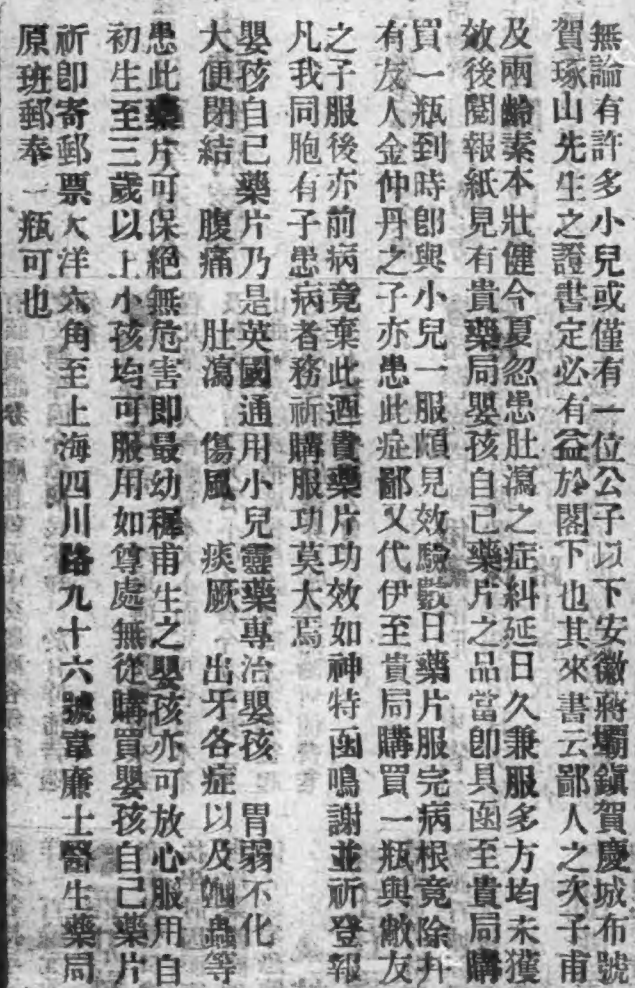 無論有許多小兒或僅有一位公子以下安徽蔣壩鎭賀慶城布號
賀琢山先生之證書定必有益於閣下也其來書云鄙人之次子甫
及兩齡素本壯健今夏忽患肚瀉之症糾延日久兼服多方均未獲
效後閱報紙見有貴藥局嬰孩自己藥片之品當卽具函至貴局購
買一瓶到時卽與小兒一服頗見效驗數日藥片服完病根竟除幷
有友人金仲丹之子亦患此症鄙又代伊至貴局購買一瓶與敝友
之子服後亦前病竟棄此洒貴藥片功效如神特函鳴謝並祈登報
凡我同胞有子患病者務祈購服功莫大焉
嬰孩自己藥片乃是英國通用小兒靈藥專治嬰孩 胃弱不化
大便閉結 腹痛 肚瀉 傷風 痰厥 出牙各症以及蟲等
患此藥片可保絕無危害卽最幼穉甫生之嬰孩亦可放心服用自
初生至三歲以上小孩均可服用如尊處無從購買嬰孩自己藥片
祈卽寄郵票大洋六角至上海四川路九十六號韋廉士醫生藥局
原班郵奉一瓶可也